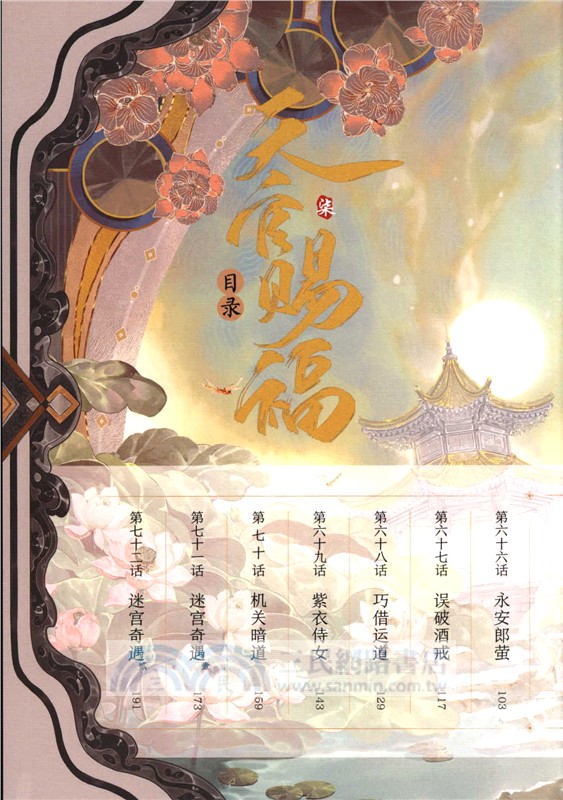 天官赐福
柒
目录
第六十六话 永安郎萤 103
第六十七话 误破酒戒 117
第六十八话 巧借运道 129
第六十九话 紫衣侍女 143
第七十话 机关暗道 159
第七十一话 迷宫奇遇 173
第七十二话 迷宫奇遇 191
三民網路書店
www.sanmin.com.tw